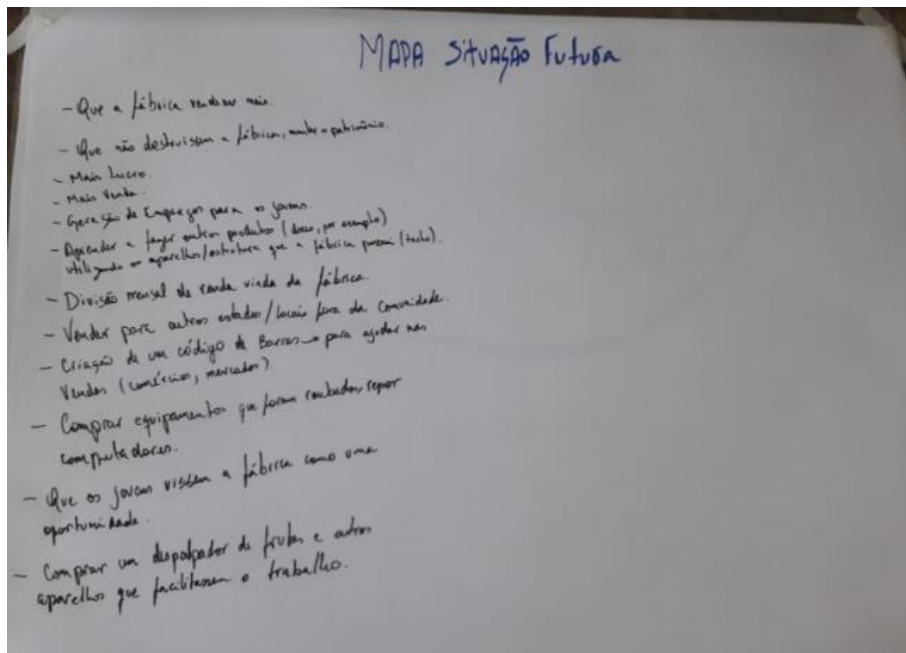 MAPA SITUAÇÃO FUTURA
- Que a fábrica vendesse mais.
- Que não destruissem a fábrica, patrimônio.
- Mais Lucro.
- Mais Venda.
- Geração de Empregos para os jovens.
- Aprender a fazer outros produtos (doce, por exemplo)
utilizando os aparelhos/estrutura que a fábrica possui (tacho).
- Divisão mensal de renda vinda da fábrica.
- Vender para outros estados/locais fora da comunidade.
- Criação de um código de Barras → para ajudar nas
Vendas (comércios, mercados).
- Comprar equipamentos que foram roubados, repor
computadores.
- Que os jovens vissem a fábrica como uma
oportunidade.
- Comprar um despolpador de frutas e outros
aparelhos que facilitassem o trabalho.